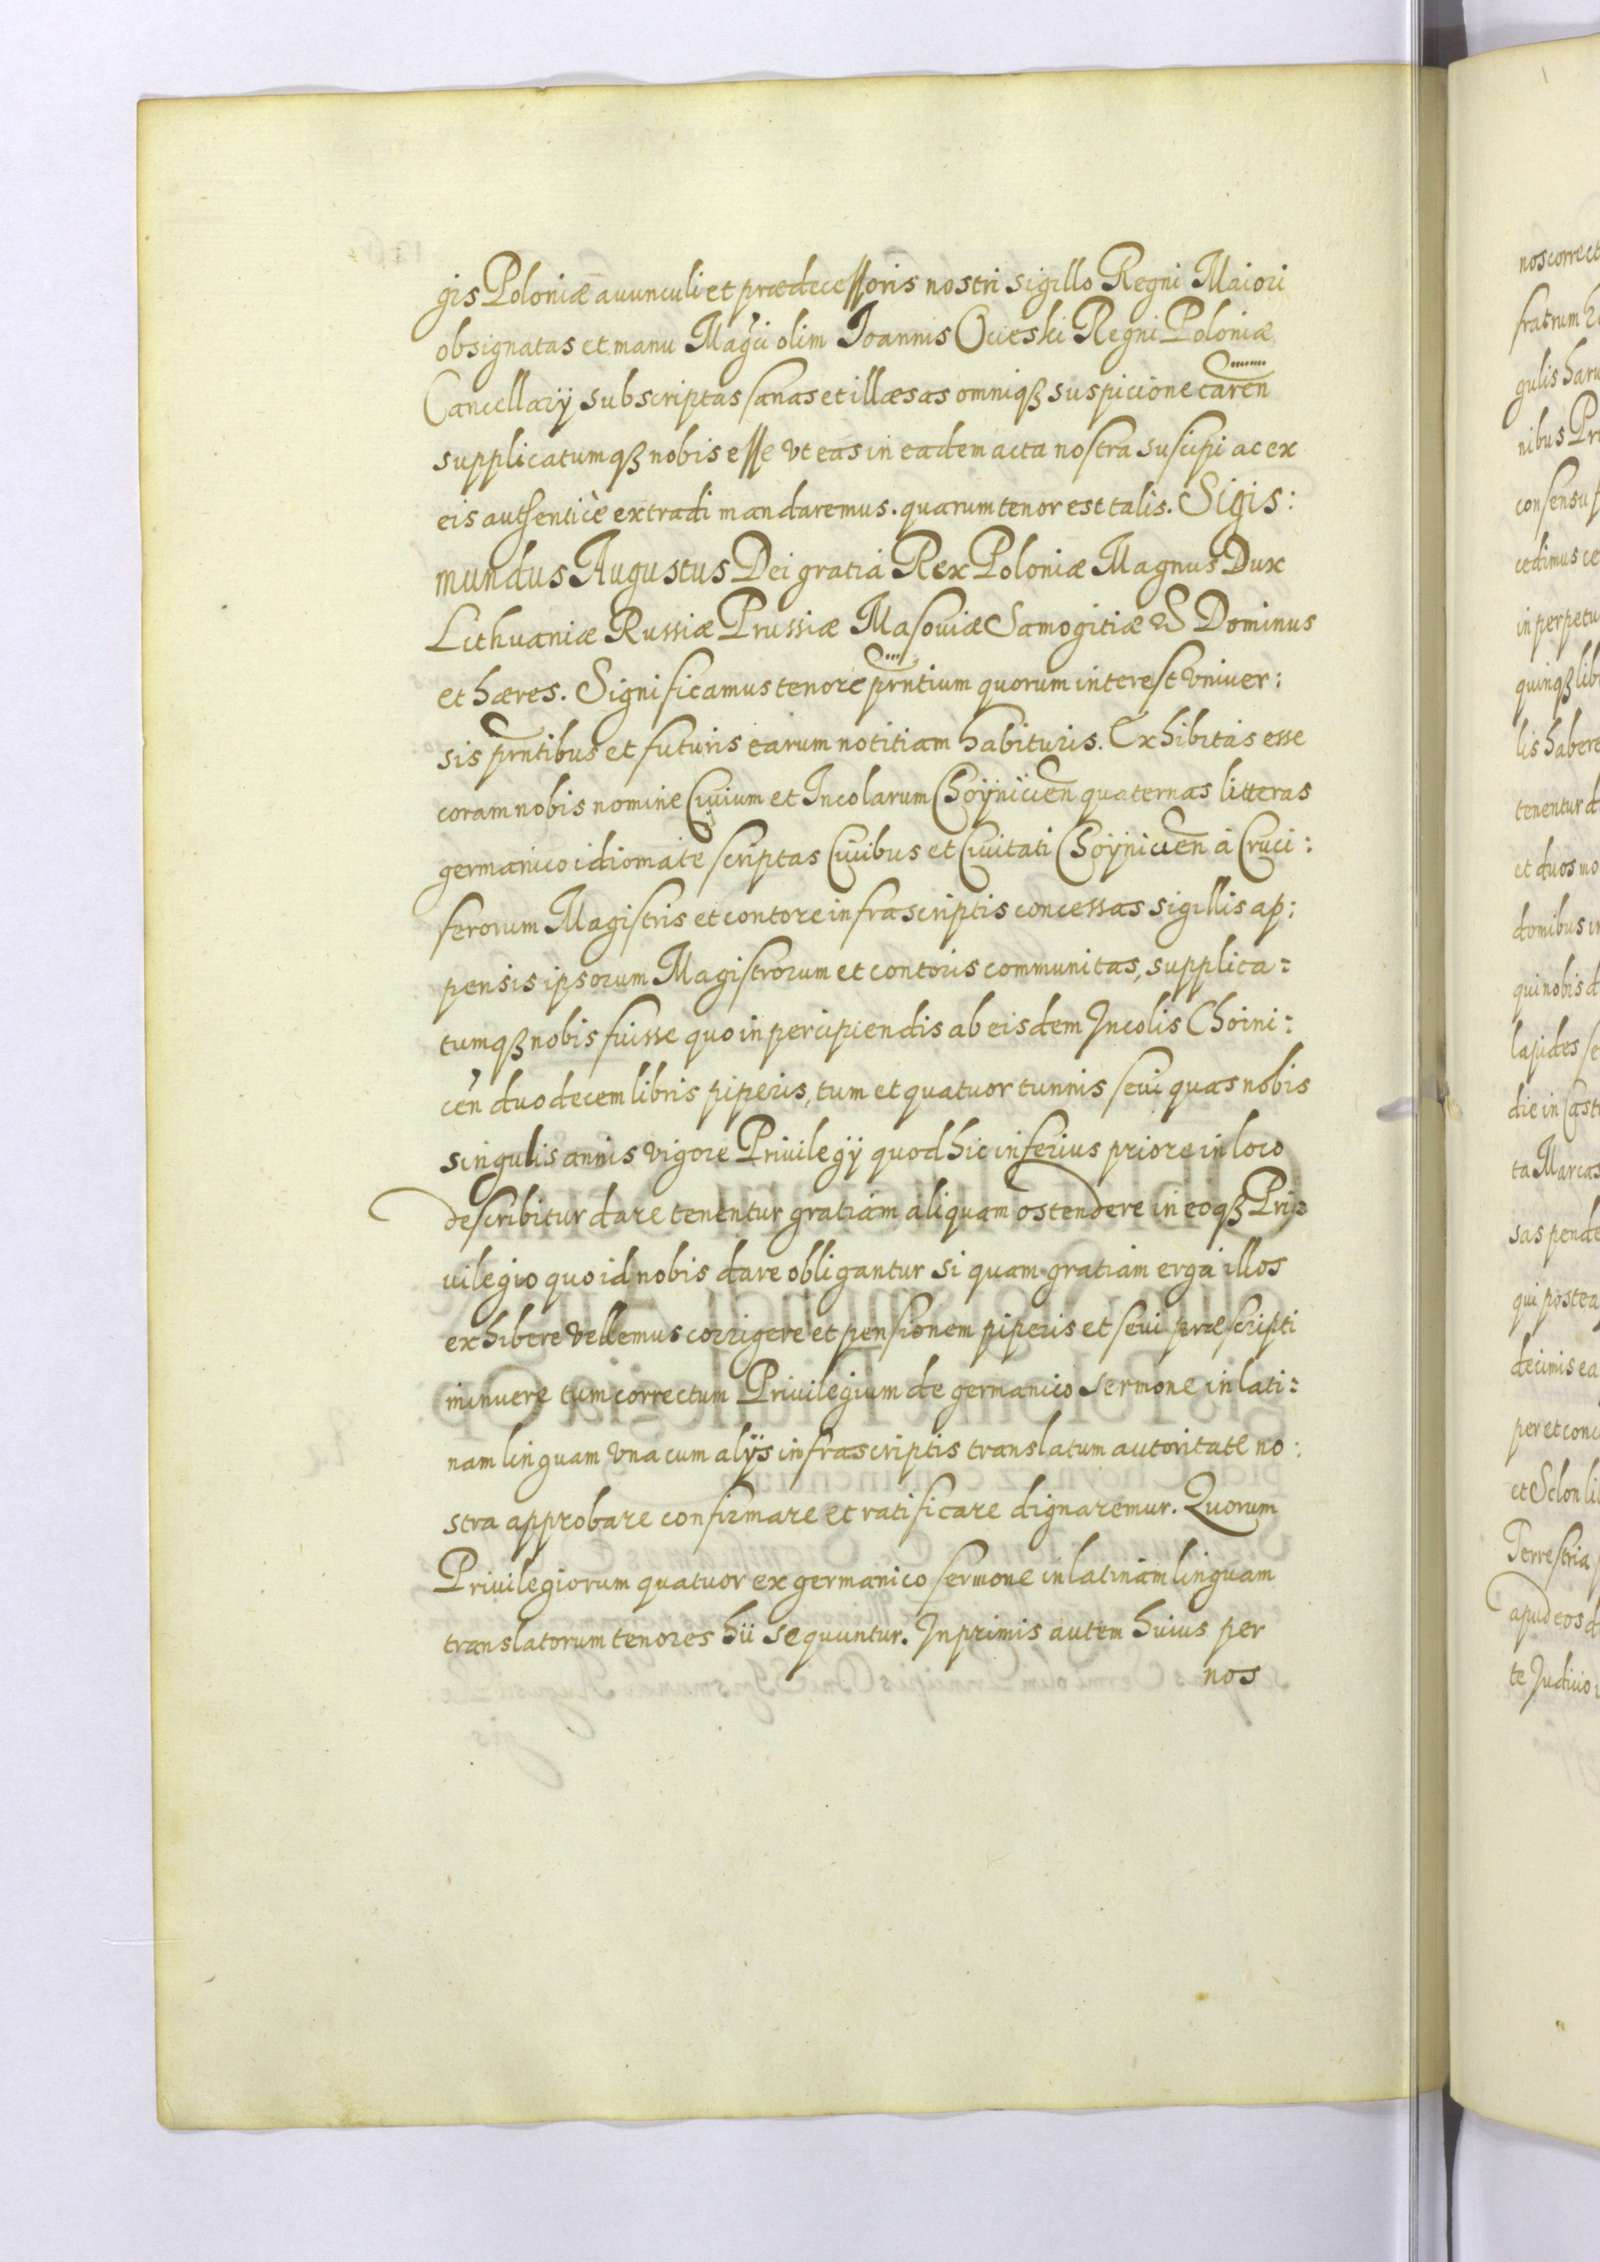 gis Poloniæ avunculi et prædecessoris nostri sigillo Regni Maiori
obsignatas et manu Magci olim Ioannis Ocieski Regni Poloniæ
Cancellarÿ subscriptas sanas et illæsas omniqꝫ suspicione caren
supplicatumqꝫ nobis esse vt eas in eadem acta nostra suscipi ac ex
eis authenticè extradi mandaremus. quarum tenor est talis. Sigis:
mundus Augustus Dei gratia Rex Poloniæ Magnus Dux
Lithuaniæ Russiæ Prussiæ Masoviæ Samogitiæ & Dominus
et hæres. Significamus tenore prntium quorum interest vniver:
sis prntibus et futuris earum notitiam habituris. Exhibitas esse
coram nobis nomine Civium et Incolarum Choÿnicen quaternas litteras
germanico idiomate scriptas Civibus et Civitati Choÿnicen à Cruci:
ferorum Magistris et contore infrascriptis concessas sigillis ap:
pensis ipsorum Magistrorum et contoris communitas, supplica=
tumqꝫ nobis fuisse quo in percipiendis ab eisdem Incolis Choini:
cen duodecem libris piperis, tum et quatuor tunnis sevi quas nobis
singulis annis vigore Privilegÿ quod hic inferius priore in loco
describitur dare tenentur gratiam aliquam ostendere in eoqꝫ Pri=
vilegio quo id nobis dare obligantur si quam gratiam erga illos
exhibere vellemus corrigere et pensionem piperis et sevi præscripti
minuere tum correctum Privilegium de germanico sermone in lati=
nam linguam vna cum alÿs infrascriptis translatum autoritate no:
stra approbare confirmare et ratificare dignaremur. Quorum
Privilegiorum quatuor ex germanico sermone in latinam linguam
translatorum tenores hii sequuntur. Inprimis autem huius per
nos
nos correct
fratrum
gulis haru
nibus Pr
consensu
cedimus ce
in perpetu
quinqꝫ lib
lis habere
tenentur d
et duos mo
domibus in
qui nobis d
lapides se
die in Cast
ta Marcas
sas pende
qui postea
decimis ea
per et conc
et Sclon li
Terrestria
apud eos d
te Judicio